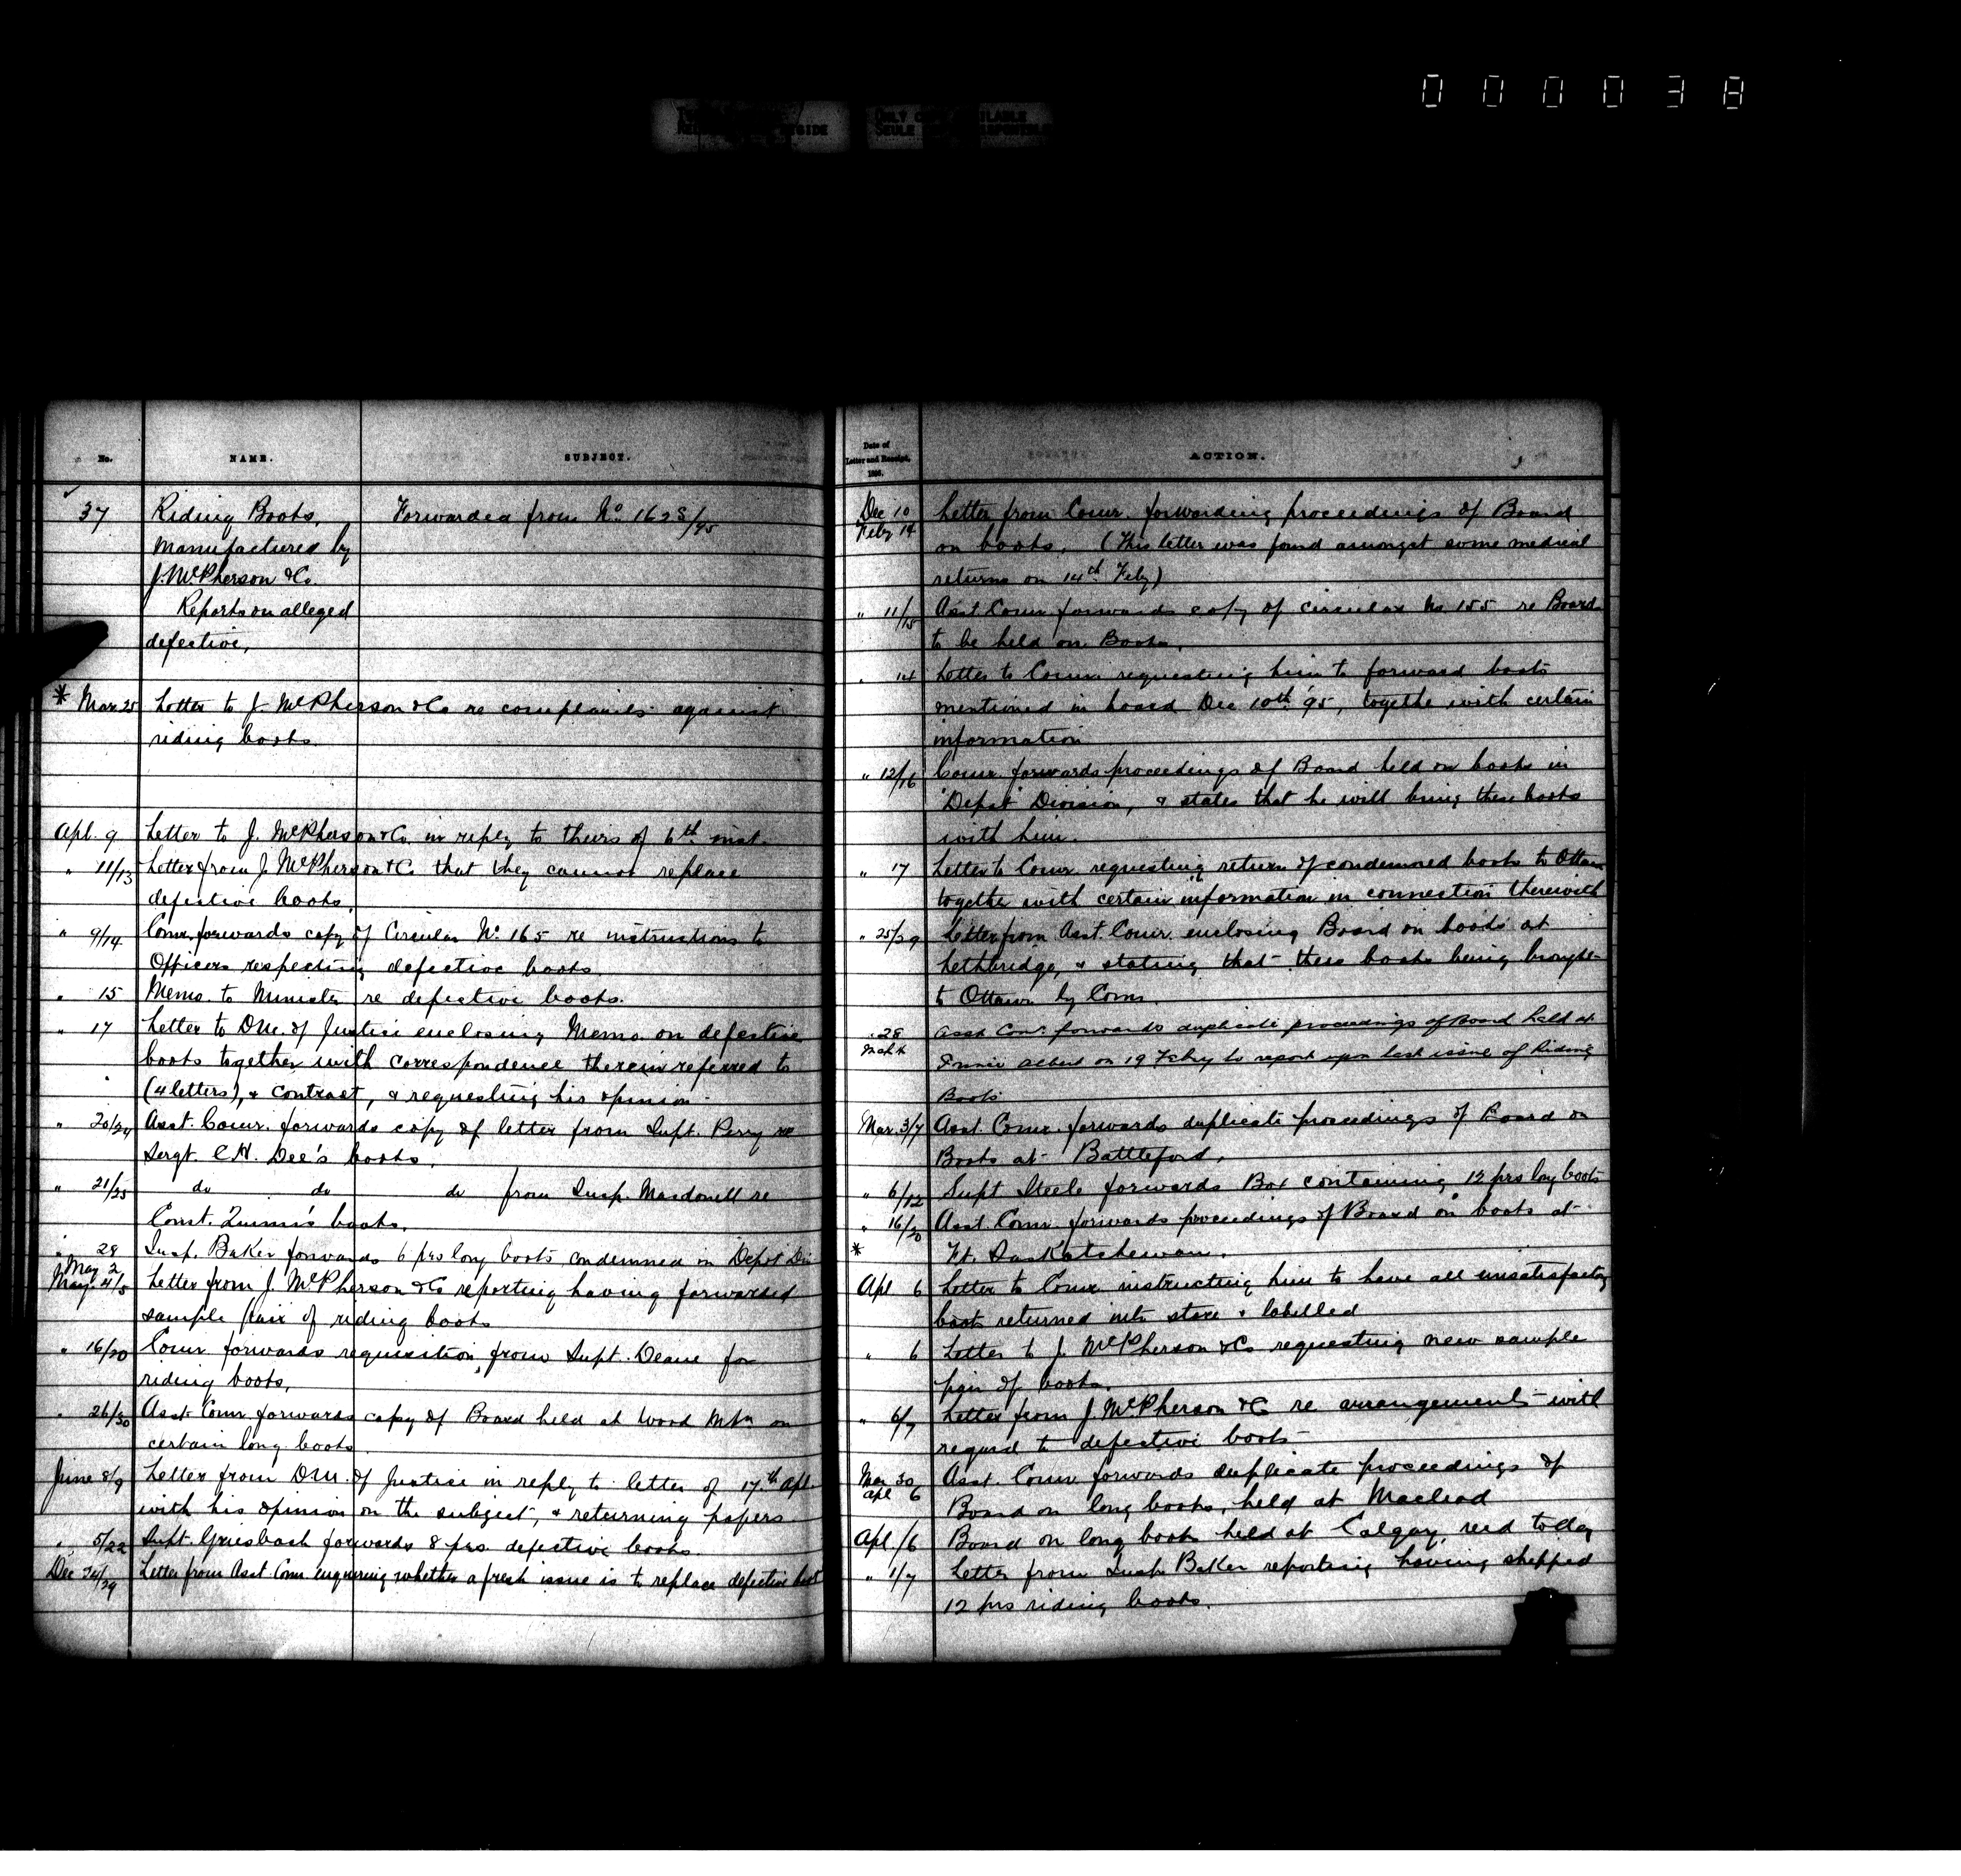 000038
ONLY COPY AVAILABLE
No. NAME. SUBJECT.
37 Riding Boots, Forwarded from No. 1628/95
Manufactured by
J. McPherson & Co.
Reports on alleged
defective,
* Mar. 25 Letter to J. McPherson & Co re complaints against
riding boots.
Apl. 9 Letter to J. McPherson & Co. in reply to theirs of 6th inst.
" 11/13 Letter from J. McPherson & Co. that they cannot replace
defective boots.
" 9/14 Comr. forwards copy of Circular No. 165 re instructions to
Officers respecting defective boots.
" 15 Memo. to Minister re defective boots.
" 17 Letter to D.M. of Justice enclosing Memo. on defective
boots together with correspondence therein referred to
(4 letters), & contract, & requesting his opinion.
" 20/24 Asst. Comr. forwards copy of letter from Supt. Perry re
Sergt. C.H. Dee's boots.
" 21/25 do do do from Insp. Macdonell re
Const. boots.
" 28 May 2 Insp. Baker forwards 6 prs long boots condemned in Depot Div
May 4/5 Letter from J. McPherson & Co reporting having forwarded
sample pair of riding boots
" 16/20 Comr. forwards requisition from Supt. Deane for
riding boots,
" 26/30 Asst. Comr. forwards copy of Board held at Wood Mtn on
certain long boots.
June 8/9 Letter from D.M. of Justice in reply to letter of 17th Apl.
with his opinion on the subject, & returning papers.
" 5/22 Supt. Griesbach forwards 8 prs. defective boots.
Dec 24/29 Letter from Asst Comr enquiring whether a fresh issue is to replace defective boots
Date of
Letter and Receipt, ACTION.
1896.
Dec 10 Letter from Comr. forwarding proceedings of Board
Feby 14 on boots. (This letter was found amongst some medical
returns on 14th Feby)
" 11/15 Asst. Comr. forwards copy of circular No 155 re Board
to be held on Boots.
" 14 Letter to Comr. requesting him to forward boots
mentioned in board Dec 10th '95, togethe with certain
information
" 12/16 Comr. forwards proceedings of Board held on boots in
"Depot" Division, & states that he will bring these boots
with him.
" 17 Letter to Comr. requesting return of condemned boots to Ottawa
together with certain information in connection therewith
" 25/29 Letter from Asst. Comr. enclosing Board on boots at
Lethbridge, & stating that these boots being brought
to Ottawa by Comr.
" 28 Asst Comr. forwards duplicate proceedings of Board held at
Mch 4 Prince Albert on 19 Feby to report upon last issue of Riding
Boots
Mar. 3/7 Asst. Comr. forwards duplicate proceedings of Board on
Boots at Battleford.
" 6/12 Supt Steele forwards Box containing 12 prs long boots
" 16/20 Asst. Comr. forwards proceedings of Board on boots at
* Ft. Saskatchewan.
Apl 6 Letter to Comr instructing him to have all unsatisfactory
boots returned into store & labelled
" 6 Letter to J. McPherson & Co requesting new sample
pair of boots.
" 6/7 Letter from J. McPherson & Co re arrangement with
regard to defective boots
Mar 30 Asst. Comr forwards duplicate proceedings of
Apl 6 Board on long boots, held at Macleod
Apl /6 Board on long boots held at Calgary, recd today
" 1/7 Letter from Insp. Baker reporting having shipped
12 prs riding boots.